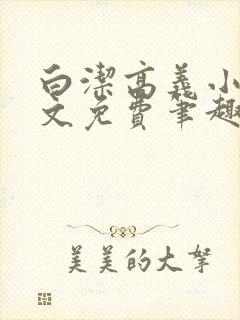 白潔高義小
文免費笔趣
美美的大拏